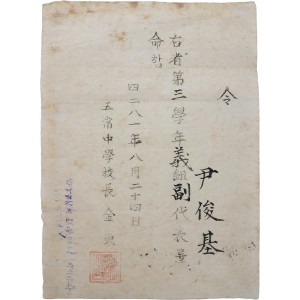 令
尹俊基
右者第三學年義組副代衣員
命함
四二八一年八月二十四日
五省中學校長 金